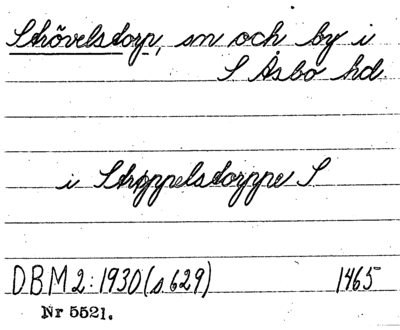 Strövelstorp, sn och by i
S Åsbo hd.
i Strøppelstorppe S
DBM 2:1930 (s. 629) 1465
Nr 5521.